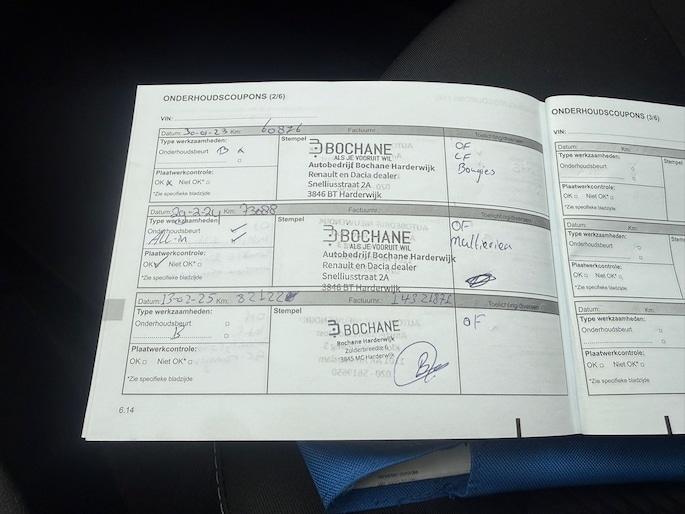 ONDERHOUDSCOUPONS (2/6)
VIN:
Datum: 30-01-23 Km: 60876 Factuurnr.: Toelichting/diversen
Type werkzaamheden: Stempel
Onderhoudsbeurt B x
BOCHANE
ALS JE VOORUIT WIL
Autobedrijf Bochane Harderwijk
Renault en Dacia dealer
Snelliusstraat 2A
3846 BT Harderwijk
OF
CF
Bougies
Plaatwerkcontrole:
OK x Niet OK*
*Zie specifieke bladzijde
Datum: 29-2-24 Km: 73688
Type werkzaamheden Stempel
Onderhoudsbeurt
ALL-in
BOCHANE
ALS JE VOORUIT WIL
Autobedrijf Bochane Harderwijk
Renault en Dacia dealer
Snelliusstraat 2A
3846 BT Harderwijk
OF
Plaatwerkcontrole:
OK Niet OK*
*Zie specifieke bladzijde
Datum: 13-02-25 Km: 82122 Factuurnr.: Toelichting/diversen
Type werkzaamheden: Stempel
Onderhoudsbeurt
B
BOCHANE
Bochane Harderwijk
3845 MC Harderwijk
B
OF
Plaatwerkcontrole:
OK Niet OK*
*Zie specifieke bladzijde
6.14
ONDERHOUDSCOUPONS (3/6)
VIN:
Datum: Km:
Type werkzaamheden:
Onderhoudsbeurt
Plaatwerkcontrole:
OK Niet OK*
*Zie specifieke bladzijde
Datum: Km:
Type werkzaamheden:
Onderhoudsbeurt
Plaatwerkcontrole:
OK Niet OK*
*Zie specifieke bladzijde
Datum: Km:
Type werkzaamheden:
Onderhoudsbeurt
Plaatwerkcontrole:
OK Niet OK*
*Zie specifieke bladzijde